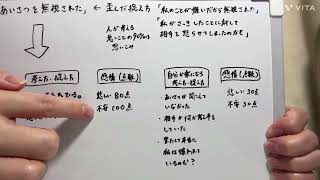 あいさつを無視された
歪んだ捉え方
「私のことが嫌いだから無視された」
「私がさっきしたことに対して
相手を怒らせてしまったのかも」
人が考える
思いこみ
考え方・捉え方
感情（点数）
悲しい 80点
不安 100点
自分が楽になる
考え方・捉え方
・あいさつが聞こえて
いなかった
・相手が何か考え事を
していた
・果たして本当に
私は嫌われて
いるのか？
感情（点数）
悲しい 30点
不安 50点
VITA